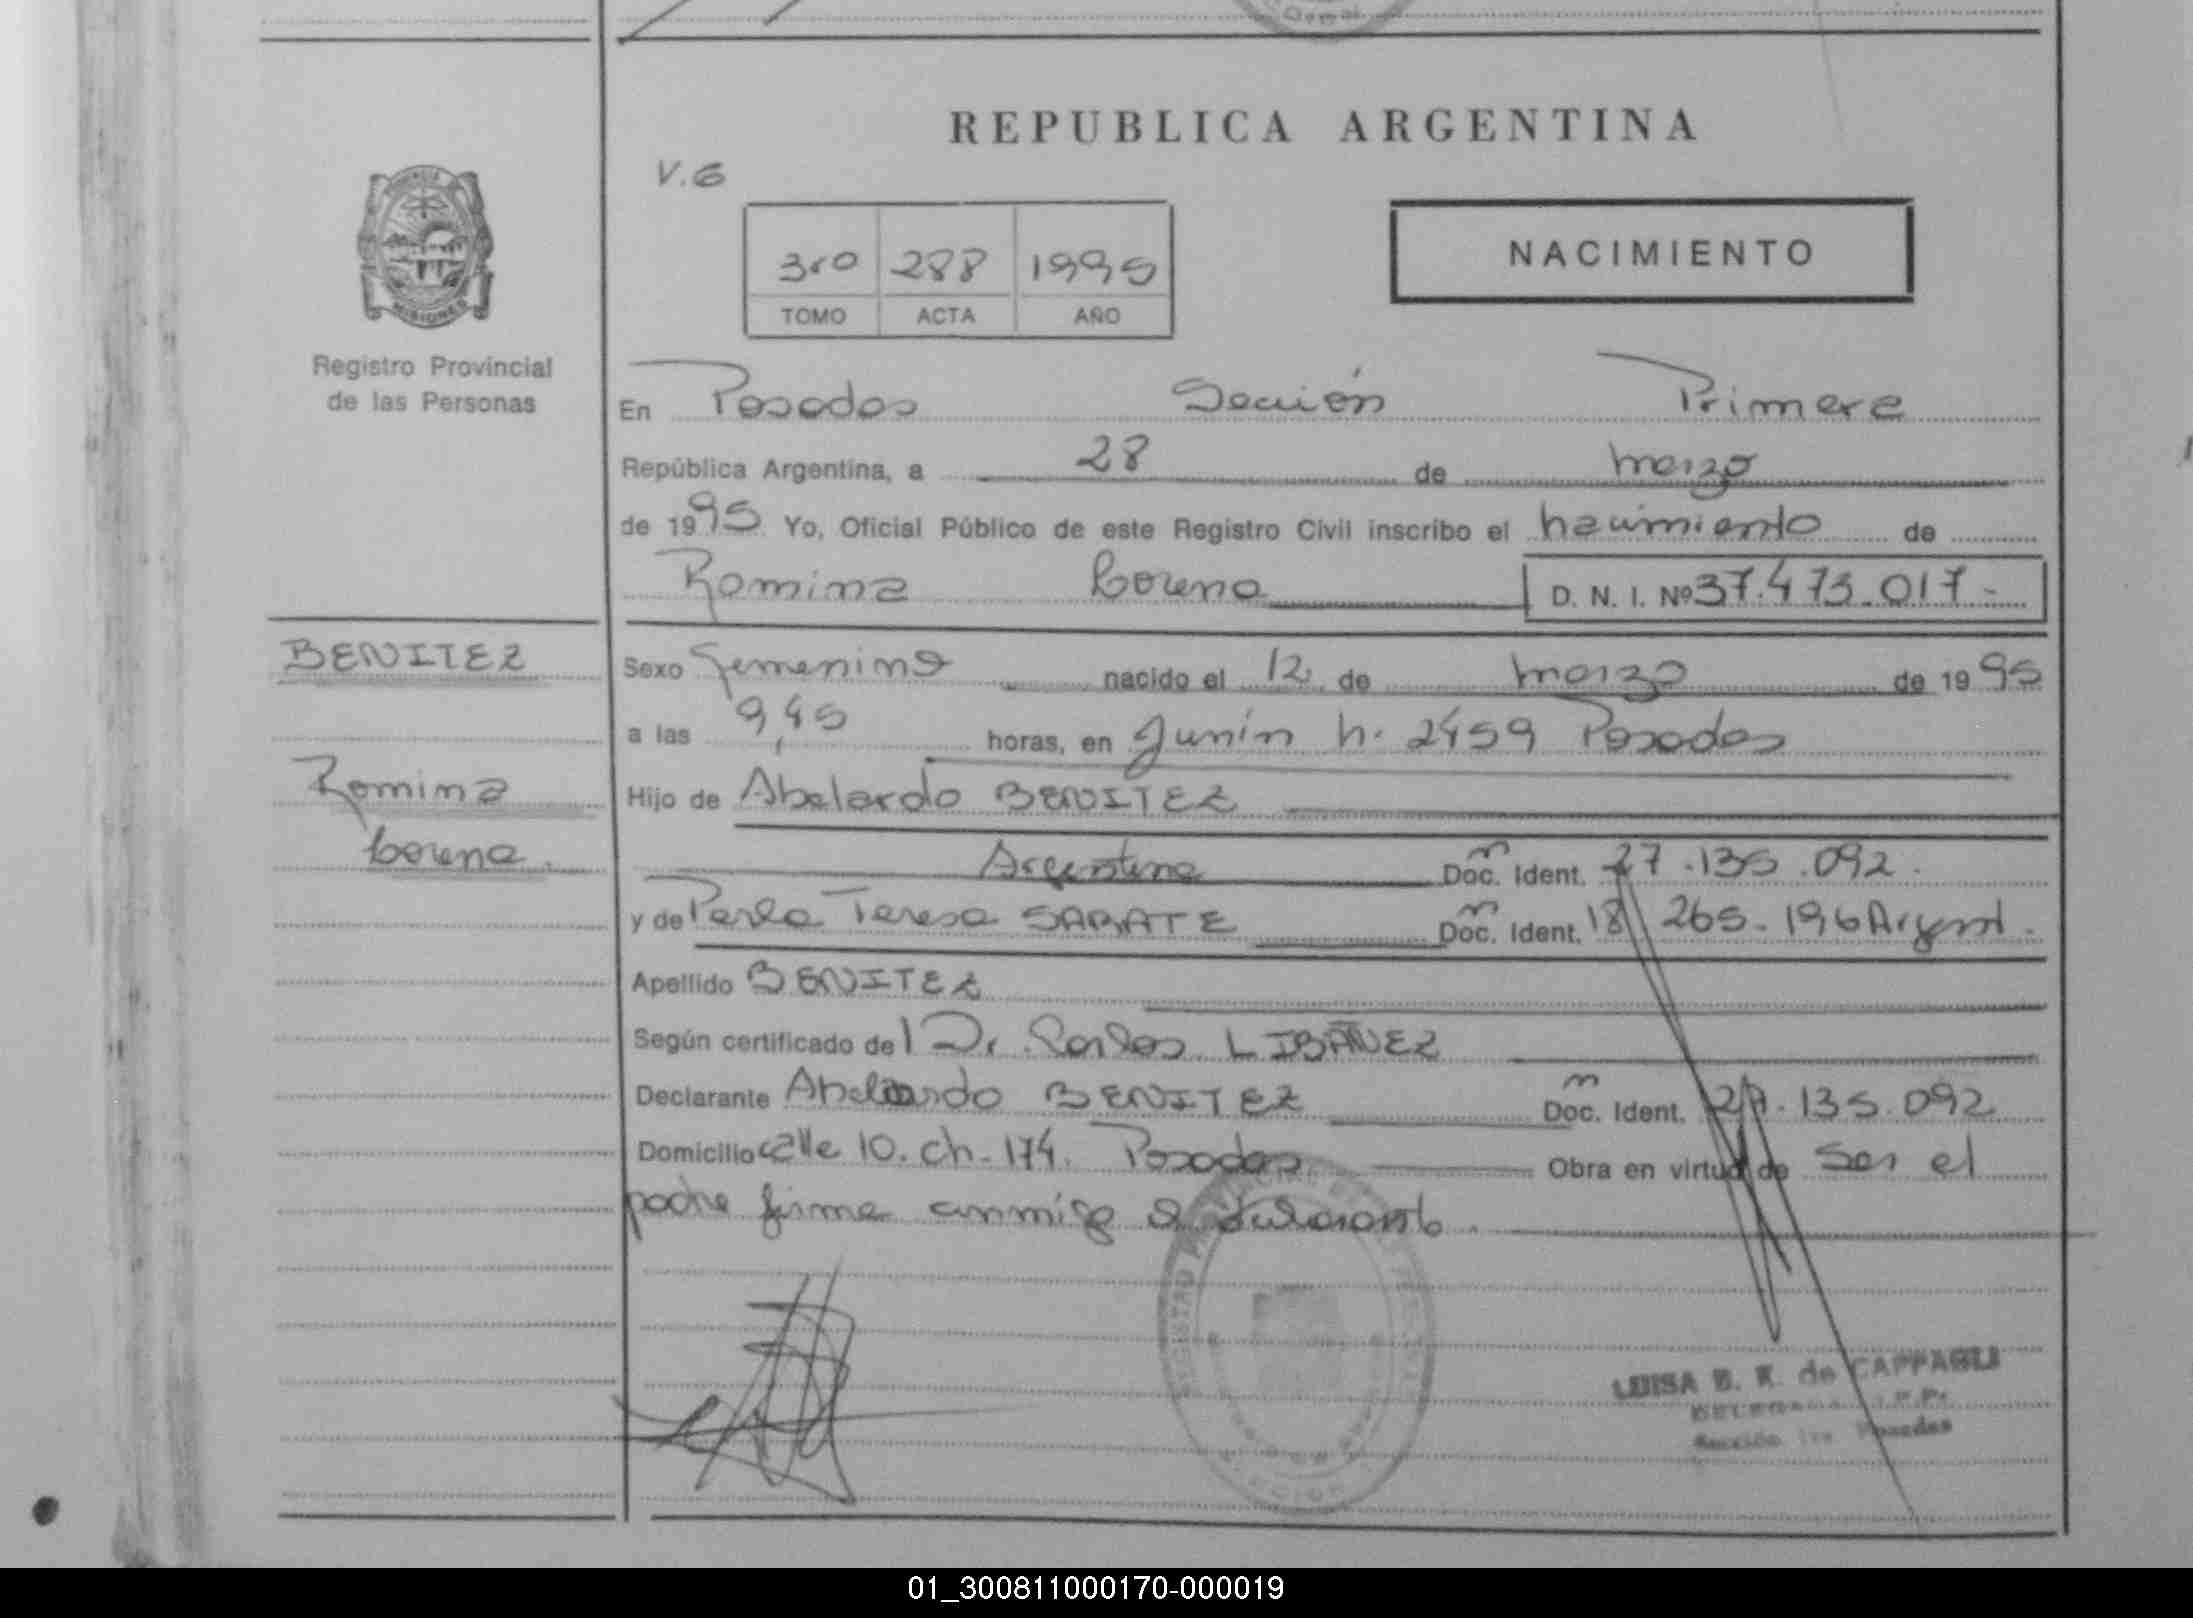 REPUBLICA ARGENTINA
V.6
3ro 288 1995
TOMO ACTA AÑO
NACIMIENTO
MISIONES
Registro Provincial
de las Personas
En Posadas Sección Primera
República Argentina, a 28 de marzo
de 1995 Yo, Oficial Público de este Registro Civil inscribo el nacimiento de
Romina Lorena D. N. I. Nº 37.473.017-
BENITEZ
Romina
Lorena.
Sexo Femenino nacido el 12 de marzo de 1995
a las 9,45 horas, en Junín n. 2459 Posadas
Hijo de Abelardo BENITEZ
Argentino Doc. Ident. 27.135.092.
y de Perla Teresa SARATE Doc. Ident. 18 265.196 Argent.
Apellido BENITEZ
Según certificado del Dr. Carlos LIBAÑEZ
Declarante Abelardo BENITEZ Doc. Ident. 27.135.092
Domicilio calle 10. ch-174. Posadas Obra en virtud de Ser el
padre firma conmigo el declarante.
LUISA B. K. de CAPPAGLI
Sección 1ra Posadas
01_300811000170-000019